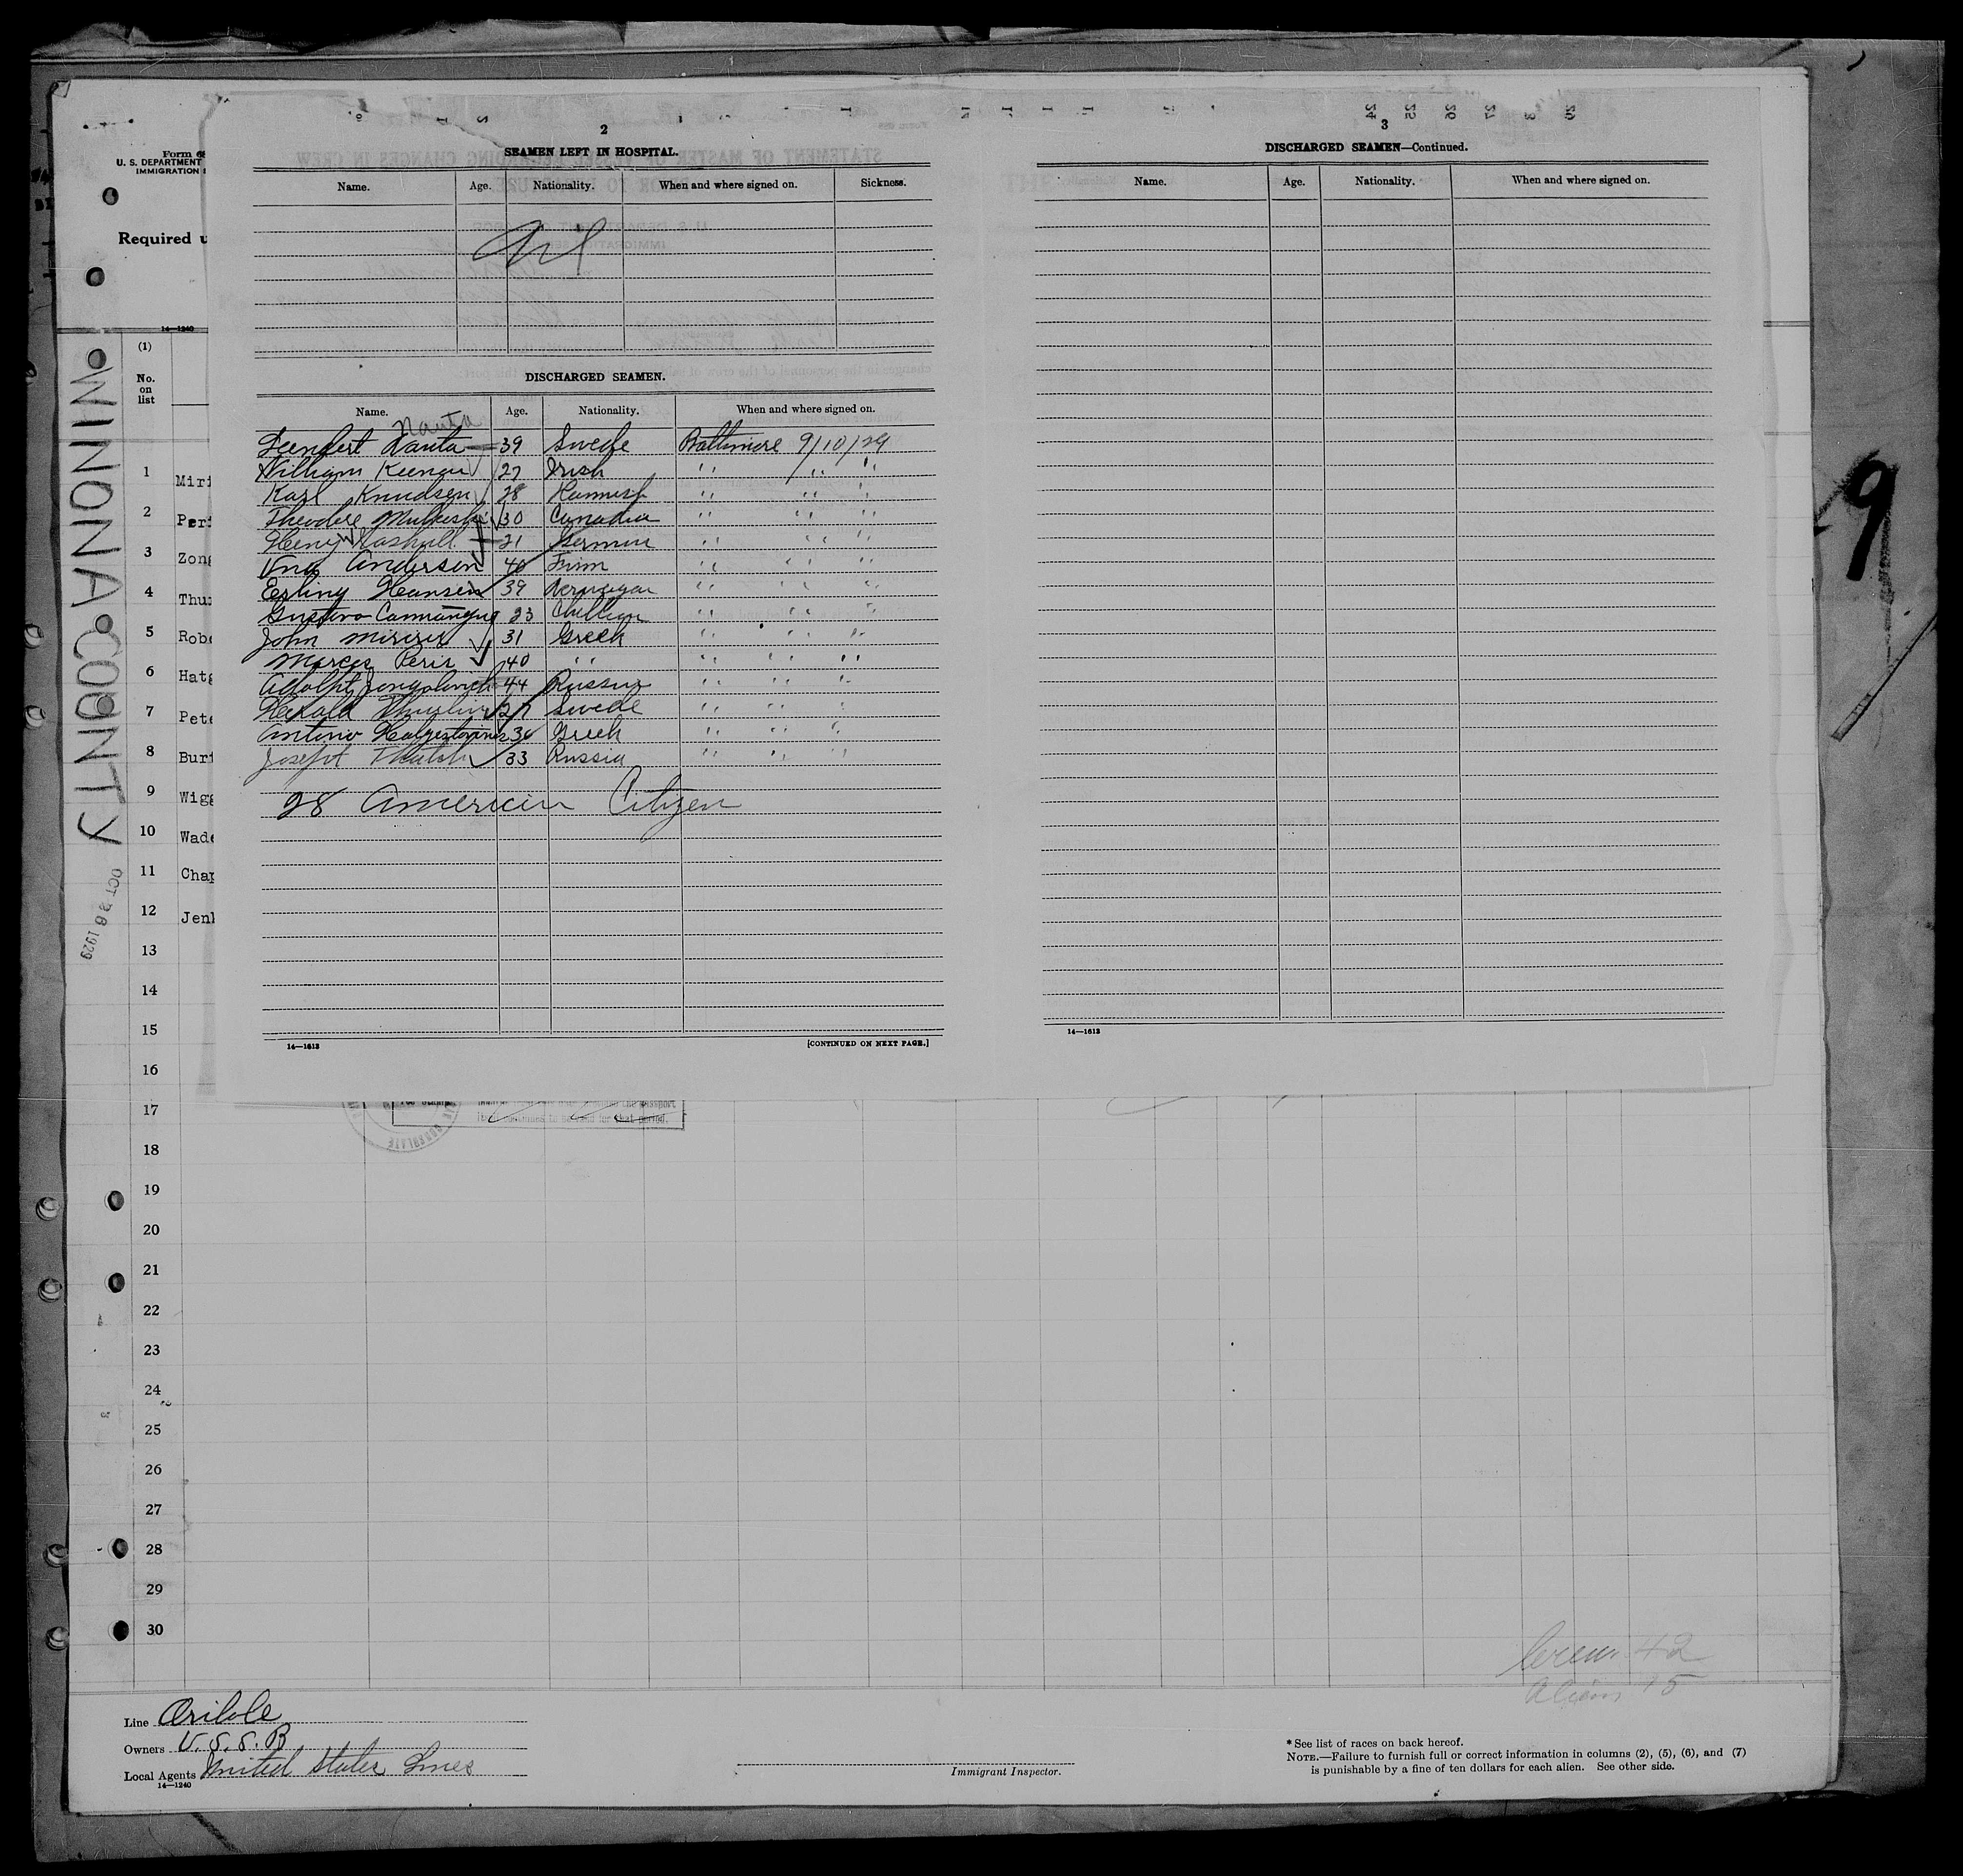 2
SEAMEN LEFT IN HOSPITAL.
Name. Age. Nationality. When and where signed on. Sickness.
Nil
DISCHARGED SEAMEN.
Name. Age. Nationality. When and where signed on.
Nauta
Leendert Nauta 39 Swede Baltimore 9/10/29
William Keenan 27 Irish " " "
Karl Knudsen 28 " " "
Theodore 30 Canadia " " "
Henry 21 German " " "
Uno Anderson 40 Finn " " "
Erling Hansen 39 Norwegan " " "
Gustavo 23 Chillian " " "
John 31 Greek " " "
Marcos Peris 40 " " " "
Adolph 44 Russia " " "
Harald 27 Swede " " "
Antino 36 Greek " " "
Joseph 33 Russia " " "
28 American Citizen
14—1613 [CONTINUED ON NEXT PAGE.]
3
DISCHARGED SEAMEN—Continued.
Name. Age. Nationality. When and where signed on.
14—1613
Form
U. S. DEPARTMENT
IMMIGRATION
Required
14—1240
WINONA COUNTY
OCT 26 1929
(1)
No.
on
list
1 Miri
2 Peri
3 Zong
4 Thur
5 Robe
6 Hatg
7 Pete
8 Buri
9 Wigg
10 Wade
11 Chap
12 Jenk
13
14
15
16
17
18
19
20
21
22
23
24
25
26
27
28
29
30
9
Crew 42
Aliens 15
Line Oriole
Owners U.S.S.B
Local Agents United States Lines
14—1240
Immigrant Inspector.
* See list of races on back hereof.
NOTE.—Failure to furnish full or correct information in columns (2), (5), (6), and (7)
is punishable by a fine of ten dollars for each alien. See other side.